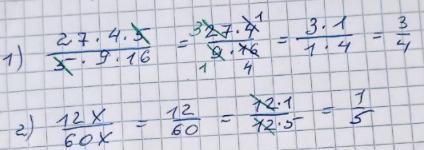 1) (27 · 4 · 5)/(5 · 9 · 16) = (³27 · 4¹)/(₁9 · 16₄) = (3 · 1)/(1 · 4) = 3/4
2) 12x/60x = 12/60 = (12 · 1)/(12 · 5) = 1/5